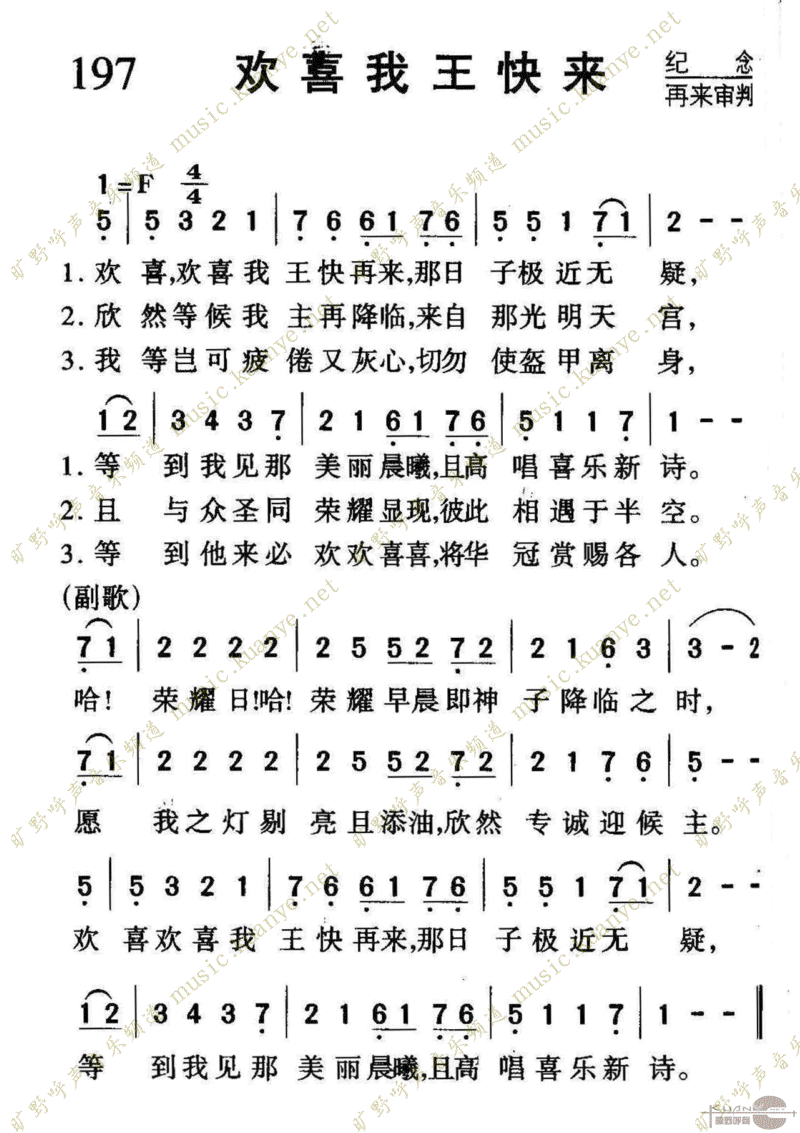 197 欢喜我王快来 纪念
再来审判
1=F 4/4
5 | 5 3 2 1 | 7 6 61 76 | 5 5 1 71 | 2 - - 
1.欢 喜,欢喜我 王快再来,那日 子极近无 疑,
2.欣 然等候我 主再降临,来自 那光明天 宫,
3.我 等岂可疲 倦又灰心,切勿 使盔甲离 身,
12 | 3 4 3 7 | 2 1 61 76 | 5 1 1 7 | 1 - - 
1.等 到我见那 美丽晨曦,且高 唱喜乐新 诗。
2.且 与众圣同 荣耀显现,彼此 相遇于半 空。
3.等 到他来必 欢欢喜喜,将华 冠赏赐各 人。
(副歌)
71 | 2 2 2 2 | 2 5 52 72 | 2 1 6 3 | 3 - 2
哈! 荣耀日!哈! 荣耀早晨即神 子降临之 时,
71 | 2 2 2 2 | 2 5 52 72 | 2 1 7 6 | 5 - - 
愿 我之灯剔 亮且添油,欣然 专诚迎候 主。
5 | 5 3 2 1 | 7 6 61 76 | 5 5 1 71 | 2 - - 
欢 喜欢喜我 王快再来,那日 子极近无 疑,
12 | 3 4 3 7 | 2 1 61 76 | 5 1 1 7 | 1 - - ‖
等 到我见那 美丽晨曦,且高 唱喜乐新 诗。
旷野呼声音乐频道 music.kuanye.net
KUAN
旷野呼声